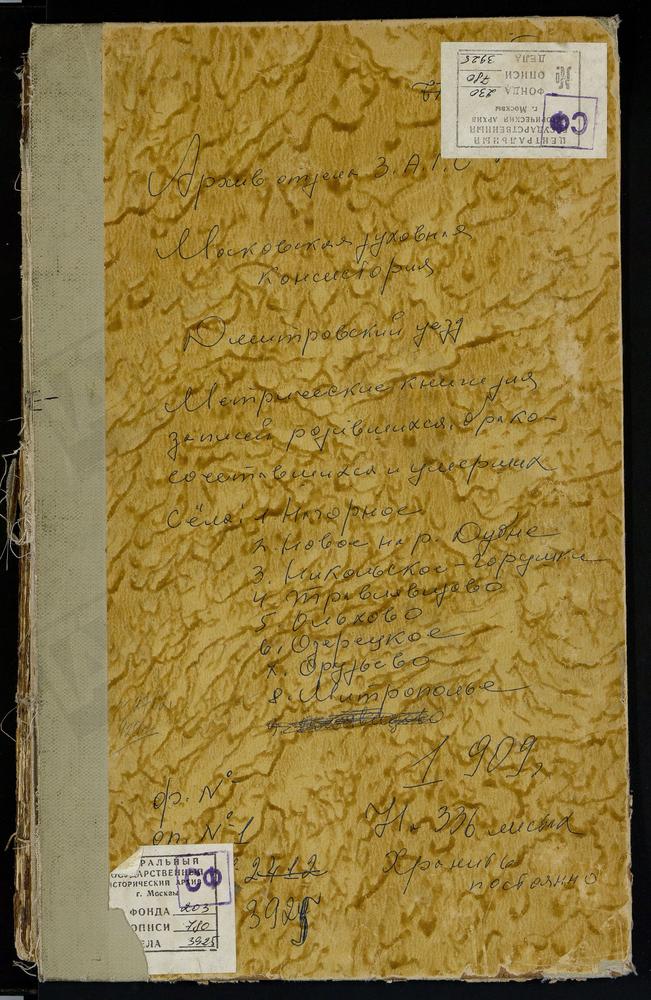 ЦЕНТРАЛЬНЫЙ
ГОСУДАРСТВЕННЫЙ
ИСТОРИЧЕСКИЙ АРХИВ
г. Москвы
ФОНДА 230
ОПИСИ 780
ДЕЛА 3925
СФ
Архив отдела З.А.Г.С
Московская духовная
консистория
Дмитровский уезд
Метрические книги для
записей родившихся, брако-
сочетавшихся и умерших
Сёла: 1 Нагорное
2. Новое на р. Дубне
3. Никольское-Горушки
4. Травлявщово
5. Ольхово
6. Озерецкое
7. Фрузьево
8. Митрополье
1909г
ф. №
оп. № 1
На 336 листах
2412
Хранить
постоянно
3925
РАЛЬНЫЙ
ГОСУДАРСТВЕННЫЙ
ИСТОРИЧЕСКИЙ АРХИВ
г. Москвы
СФ
ФОНДА 203
ОПИСИ 780
ЕЛА 3925